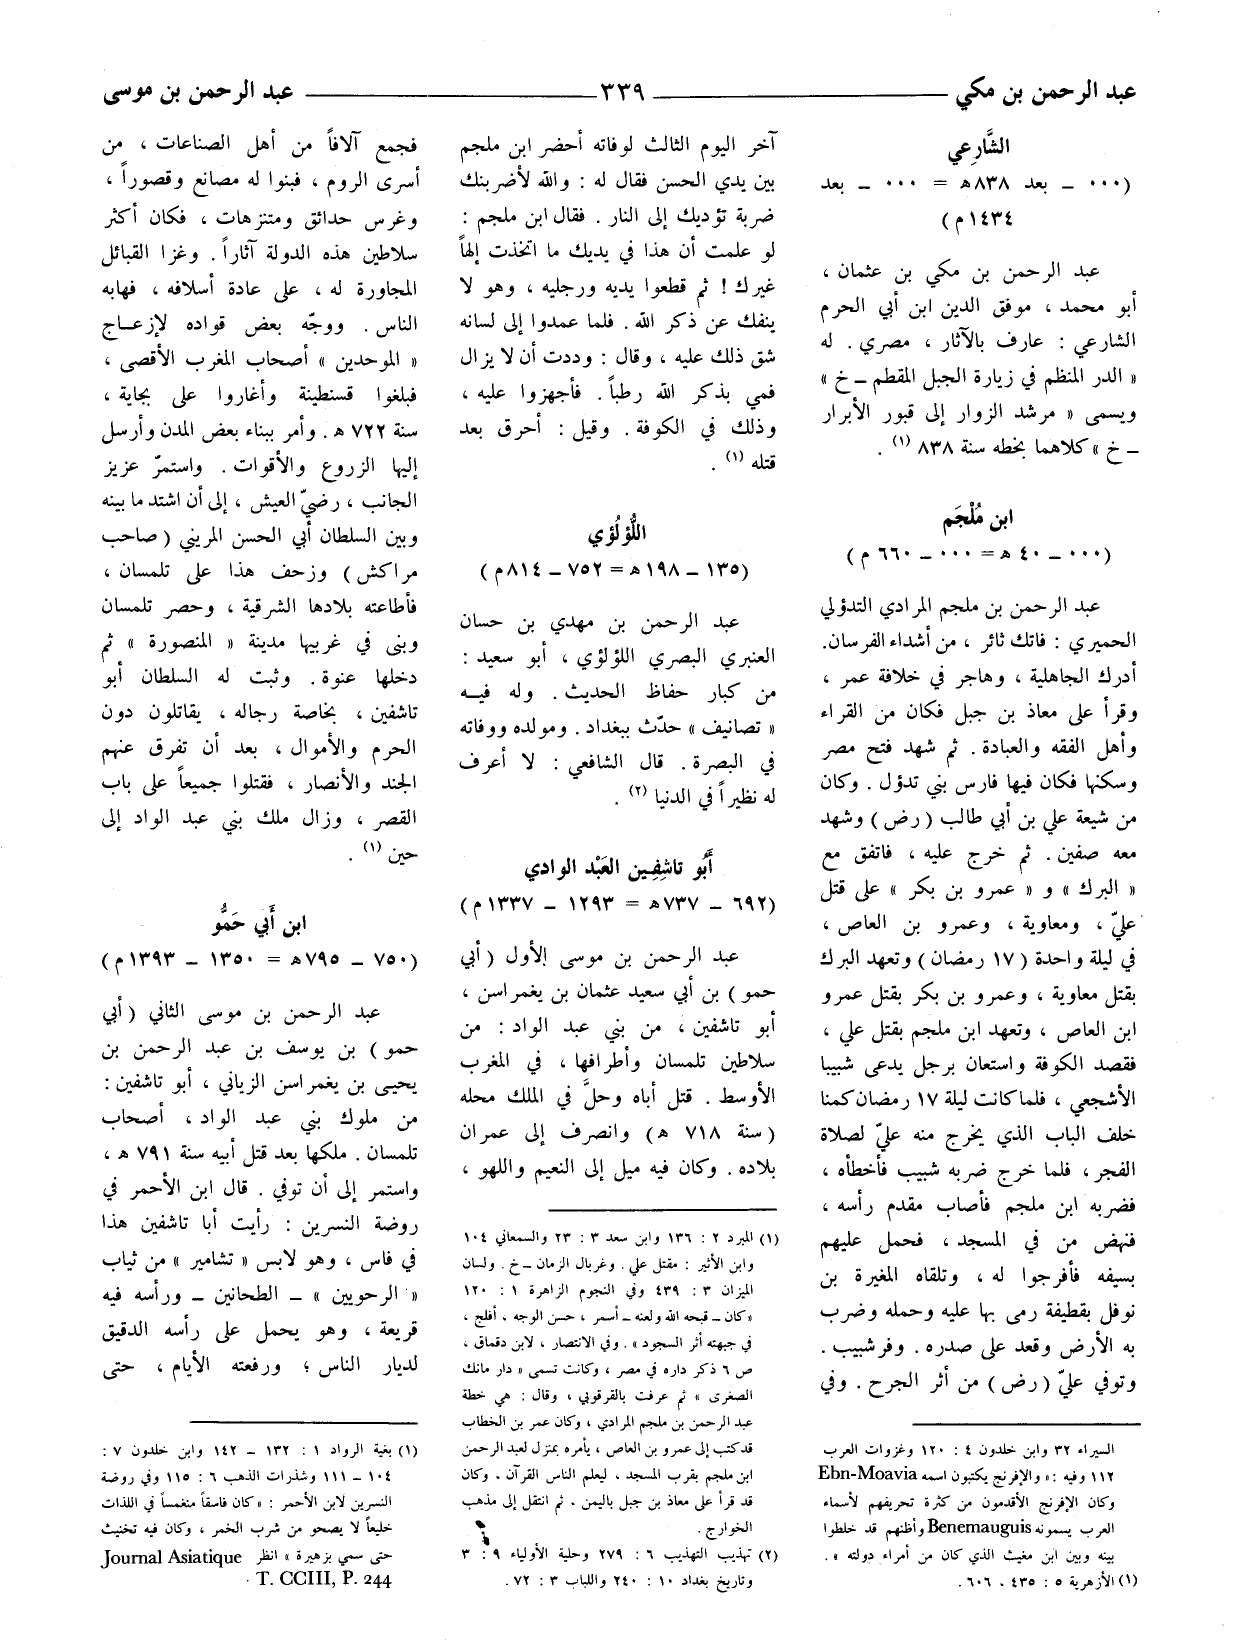 عبد الرحمن بن مكي ــــ ٣٣٩ ــــ عبد الرحمن بن موسى
الشَّارِعي
(٠٠٠ ــ بعد ٨٣٨ هـ = ٠٠٠ ــ بعد
١٤٣٤ م)
عبد الرحمن بن مكي بن عثمان ،
أبو محمد ، موفق الدين ابن أبي الحرم
الشارعي : عارف بالآثار ، مصري . له
« الدر المنظم في زيارة الجبل المقطم ــ خ »
ويسمى « مرشد الزوار إلى قبور الأبرار
ــ خ » كلاهما بخطه سنة ٨٣٨ (١) .
ابن مُلْجَم
(٠٠٠ ــ ٤٠ هـ = ٠٠٠ ــ ٦٦٠ م)
عبد الرحمن بن ملجم المرادي التدؤلي
الحميري : فاتك ثائر ، من أشداء الفرسان.
أدرك الجاهلية ، وهاجر في خلافة عمر ،
وقرأ على معاذ بن جبل فكان من القراء
وأهل الفقه والعبادة . ثم شهد فتح مصر
وسكنها فكان فيها فارس بني تدؤل . وكان
من شيعة علي بن أبي طالب ( رض ) وشهد
معه صفين . ثم خرج عليه ، فاتفق مع
« البرك » و « عمرو بن بكر » على قتل
عليّ ، ومعاوية ، وعمرو بن العاص ،
في ليلة واحدة ( ١٧ رمضان ) وتعهد البرك
بقتل معاوية ، وعمرو بن بكر بقتل عمرو
ابن العاص ، وتعهد ابن ملجم بقتل علي ،
فقصد الكوفة واستعان برجل يدعى شبيبا
الأشجعي ، فلما كانت ليلة ١٧ رمضان كمنا
خلف الباب الذي يخرج منه عليّ لصلاة
الفجر ، فلما خرج ضربه شبيب فأخطأه ،
فضربه ابن ملجم فأصاب مقدم رأسه ،
فنهض من في المسجد ، فحمل عليهم
بسيفه فأفرجوا له ، وتلقاه المغيرة بن
نوفل بقطيفة رمى بها عليه وحمله وضرب
به الأرض وقعد على صدره . وفر شبيب .
وتوفي عليّ ( رض ) من أثر الجرح . وفي
السيراء ٣٢ وابن خلدون ٤ : ١٢٠ وغزوات العرب
١١٢ وفيه : « والإفرنج يكتبون اسمه Ebn-Moavia
وكان الإفرنج الأقدمون من كثرة تحريفهم لأسماء
العرب يسمونه Benemauguis وأظنهم قد خلطوا
بينه وبين ابن مغيث الذي كان من أمراء دولته » .
(١) الأزهرية ٥ : ٤٣٥ ، ٦٠٦ .
آخر اليوم الثالث لوفاته أحضر ابن ملجم
بين يدي الحسن فقال له : والله لأضربنك
ضربة تؤديك إلى النار . فقال ابن ملجم :
لو علمت أن هذا في يديك ما اتخذت إلهاً
غيرك ! ثم قطعوا يديه ورجليه ، وهو لا
ينفك عن ذكر الله . فلما عمدوا إلى لسانه
شق ذلك عليه ، وقال : وددت أن لا يزال
فمي بذكر الله رطباً . فأجهزوا عليه ،
وذلك في الكوفة . وقيل : أحرق بعد
قتله (١) .
اللُّؤلُؤي
(١٣٥ ــ ١٩٨ هـ = ٧٥٢ ــ ٨١٤ م)
عبد الرحمن بن مهدي بن حسان
العنبري البصري اللؤلؤي ، أبو سعيد :
من كبار حفاظ الحديث . وله فيـه
« تصانيف » حدّث ببغداد . ومولده ووفاته
في البصرة . قال الشافعي : لا أعرف
له نظيراً في الدنيا (٢) .
أَبُو تاشِفِين العَبْد الوادي
(٦٩٢ ــ ٧٣٧ هـ = ١٢٩٣ ــ ١٣٣٧ م)
عبد الرحمن بن موسى الأول ( أبي
حمو ) بن أبي سعيد عثمان بن يغمراسن ،
أبو تاشفين ، من بني عبد الواد : من
سلاطين تلمسان وأطرافها ، في المغرب
الأوسط . قتل أباه وحلَّ في الملك محله
( سنة ٧١٨ هـ ) وانصرف إلى عمران
بلاده . وكان فيه ميل إلى النعيم واللهو ،
(١) المبرد ٢ : ١٣٦ وابن سعد ٣ : ٢٣ والسمعاني ١٠٤
وابن الأثير : مقتل علي . وغربال الزمان ــ خ . ولسان
الميزان ٣ : ٤٣٩ وفي النجوم الزاهرة ١ : ١٢٠
« كان ــ قبحه الله ولعنه ــ أسمر ، حسن الوجه ، أفلج ،
في جبهته أثر السجود » . وفي الانتصار ، لابن دقماق ،
ص ٦ ذكر داره في مصر ، وكانت تسمى « دار مانك
الصغرى » ثم عرفت بالقرقوبي ، وقال : هي خطة
عبد الرحمن بن ملجم المرادي ، وكان عمر بن الخطاب
قد كتب إلى عمرو بن العاص ، يأمره بمنزل لعبد الرحمن
ابن ملجم بقرب المسجد ، ليعلم الناس القرآن . وكان
قد قرأ على معاذ بن جبل باليمن . ثم انتقل إلى مذهب
الخوارج .
(٢) تهذيب التهذيب ٦ : ٢٧٩ وحلية الأولياء ٩ : ٣
وتاريخ بغداد ١٠ : ٢٤٠ واللباب ٣ : ٧٢ .
فجمع آلافاً من أهل الصناعات ، من
أسرى الروم ، فبنوا له مصانع وقصوراً ،
وغرس حدائق ومتنزهات ، فكان أكثر
سلاطين هذه الدولة آثاراً . وغزا القبائل
المجاورة له ، على عادة أسلافه ، فهابه
الناس . ووجّه بعض قواده لإزعـاج
« الموحدين » أصحاب المغرب الأقصى ،
فبلغوا قسنطينة وأغاروا على بجاية ،
سنة ٧٢٢ هـ . وأمر ببناء بعض المدن وأرسل
إليها الزروع والأقوات . واستمرّ عزيز
الجانب ، رضيّ العيش ، إلى أن اشتد ما بينه
وبين السلطان أبي الحسن المريني ( صاحب
مراكش ) وزحف هذا على تلمسان ،
فأطاعته بلادها الشرقية ، وحصر تلمسان
وبنى في غربيها مدينة « المنصورة » ثم
دخلها عنوة . وثبت له السلطان أبو
تاشفين ، بخاصة رجاله ، يقاتلون دون
الحرم والأموال ، بعد أن تفرق عنهم
الجند والأنصار ، فقتلوا جميعاً على باب
القصر ، وزال ملك بني عبد الواد إلى
حين (١) .
ابن أَبي حَمُّو
(٧٥٠ ــ ٧٩٥ هـ = ١٣٥٠ ــ ١٣٩٣ م)
عبد الرحمن بن موسى الثاني ( أبي
حمو ) بن يوسف بن عبد الرحمن بن
يحيى بن يغمراسن الزياني ، أبو تاشفين :
من ملوك بني عبد الواد ، أصحاب
تلمسان . ملكها بعد قتل أبيه سنة ٧٩١ هـ ،
واستمر إلى أن توفي . قال ابن الأحمر في
روضة النسرين : رأيت أبا تاشفين هذا
في فاس ، وهو لابس « تشامير » من ثياب
« الرحويين » ــ الطحانين ــ ورأسه فيه
قريعة ، وهو يحمل على رأسه الدقيق
لديار الناس ؛ ورفعته الأيام ، حتى
(١) بغية الرواد ١ : ١٣٢ ــ ١٤٢ وابن خلدون ٧ :
١٠٤ ــ ١١١ وشذرات الذهب ٦ : ١١٥ وفي روضة
النسرين لابن الأحمر : « كان فاسقاً منغمساً في اللذات
خليعاً لا يصحو من شرب الخمر ، وكان فيه تخنيث
حتى سمي بزهيرة » انظر Journal Asiatique
T. CCIII, P. 244 .